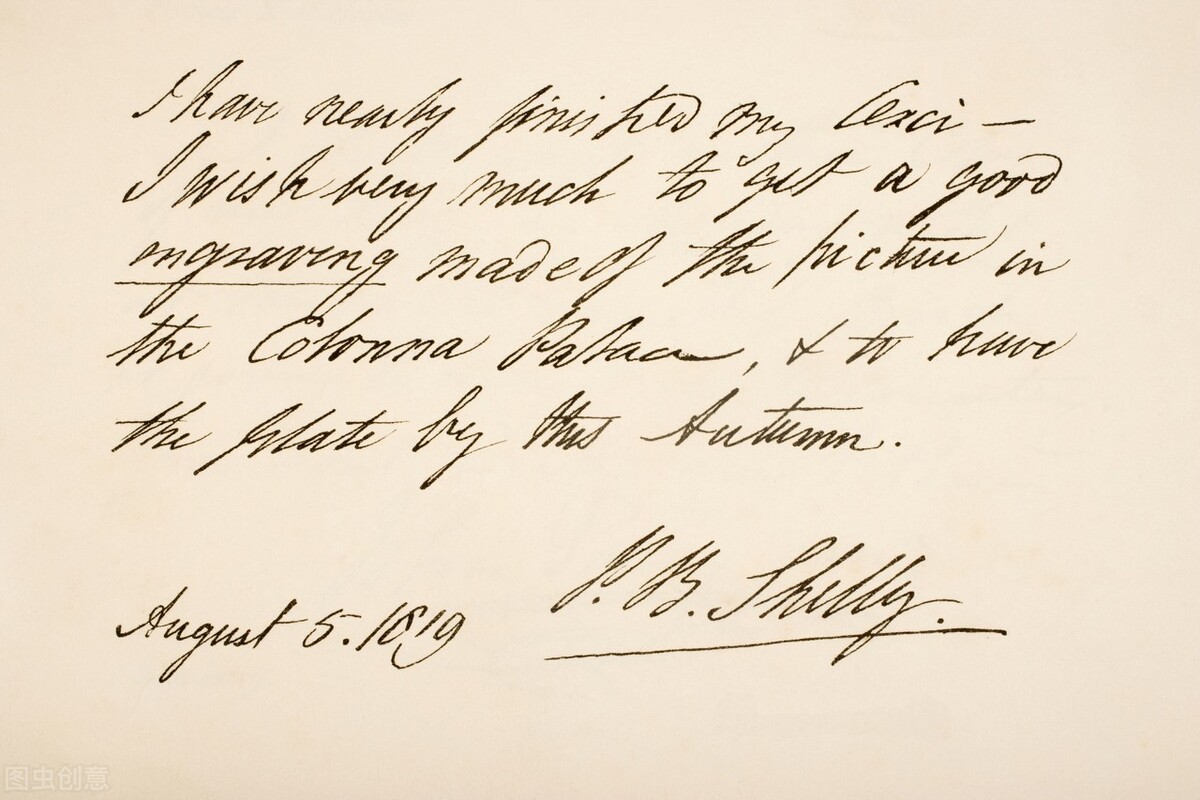 I have nearly finished my Cenci —
I wish very much to get a good
engraving made of the picture in
the Colonna Palace, & to have
the plate by this Autumn.
P. B. Shelley.
August 5. 1819
图虫创意